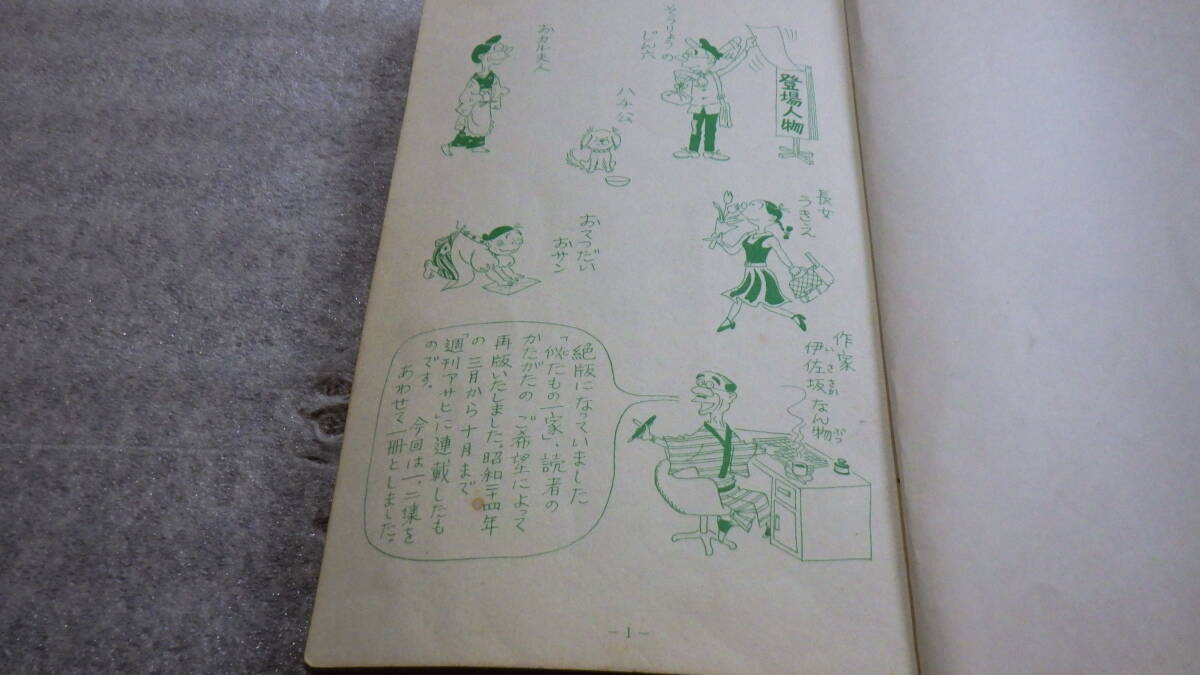 登場人物
そうりょうの
じん六
ハチ公
おカル夫人
長女
うきえ
おてつだい
おサン
作家
伊佐坂なん物
いささか
ぶつ
絶版になっていました
「似たもの一家」、読者の
かたがたの ご希望によって
再版いたしました。昭和二十四年
の 三月から十月まで
「週刊アサヒ」に連載したも
のです。 今回は一、二集を
あわせて一冊としました。
- 1 -